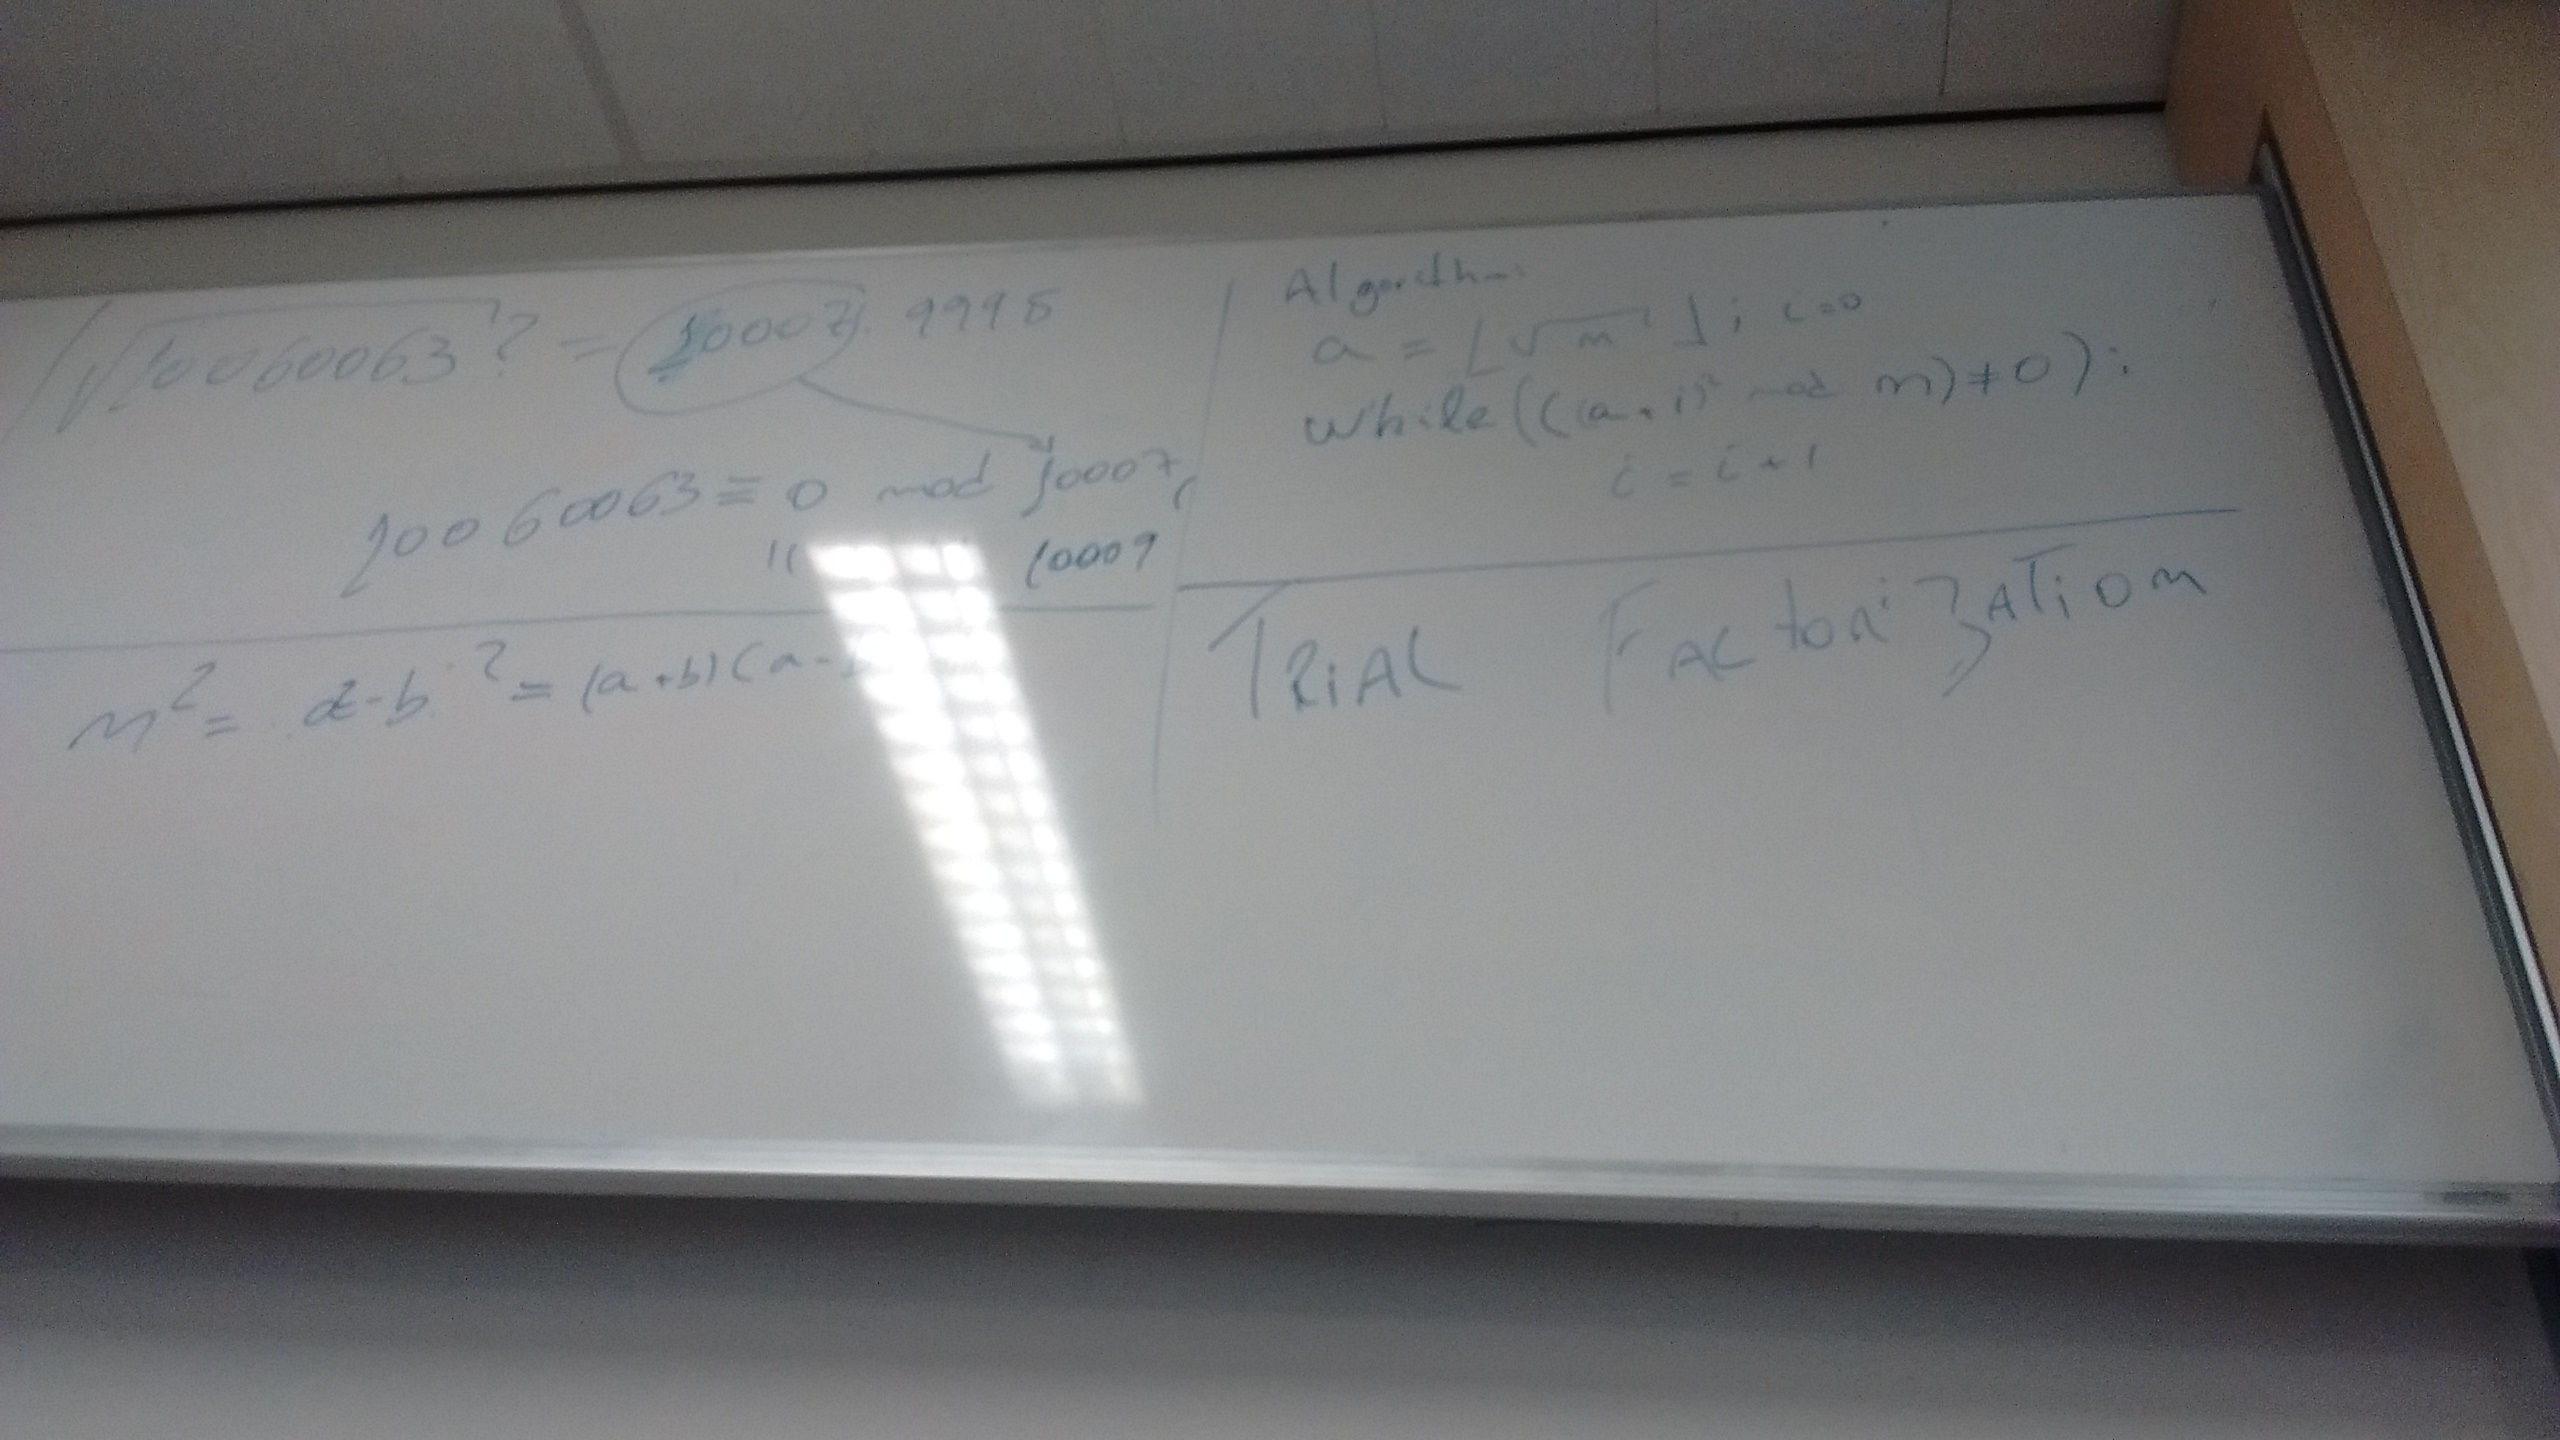 √10060063? = 10007.9995
10060063 ≡ 0 mod 10007,
" " 10009
n² = a²-b² = (a+b)(a-
Algorithm:
a = ⌊√n⌋; i=0
while(((a+i)² mod n)≠0):
i = i+1
TRIAL FACTORIZATION